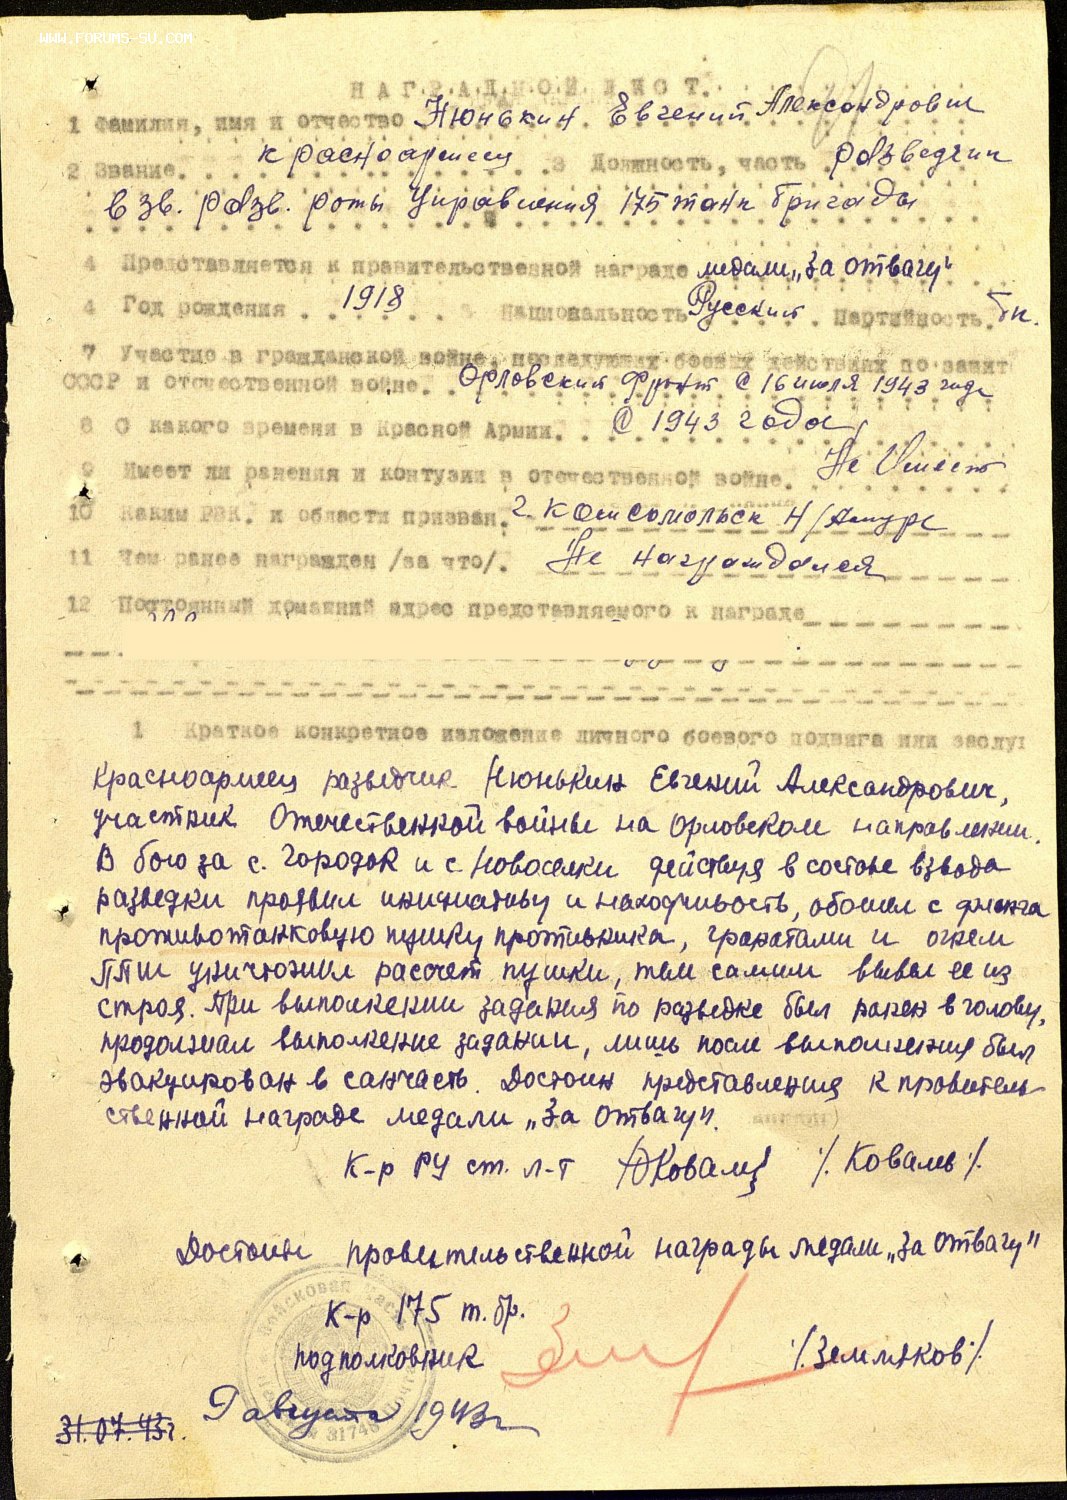 WWW.FORUMS-SU.COM
НАГРАДНОЙ ЛИСТ.
1 Фамилия, имя и отчество Нюнькин Евгений Александрович
2 Звание. красноармеец 3 Должность, часть разведчик
взв. разв. роты Управления 175 танк бригады
4 Представляется к правительственной награде медали „За отвагу"
4 Год рождения 1918 5 Национальность Русский. Партийность. бп.
7 Участие в гражданской войне, последующих боевых действиях по защит
СССР и отечественной войне. Орловский фронт с 16 июля 1943 года
8 С какого времени в Красной Армии. С 1943 года
9 Имеет ли ранения и контузии в отечественной войне. Не Имеет
10 Каким РВК. и области призван. г. Комсомольск Н/Амуре
11 Чем ранее награжден /за что/. Не награждался
12 Постоянный домашний адрес представляемого к награде
1 Краткое конкретное изложение личного боевого подвига или заслуг
Красноармеец разведчик Нюнькин Евгений Александрович,
участник Отечественной войны на Орловском направлении.
В бою за с. Городок и с. Новоселки действуя в составе взвода
разведки проявил инициативу и находчивость, обошел с фланга
противотанковую пушку противника, гранатами и огнем
ППШ уничтожил рассчет пушки, тем самим вывел ее из
строя. При выполнении задания по разведке был ранен в голову,
продолжал выполнение задании, лишь после выполнения был
эвакуирован в санчасть. Достоин представления к правитель
ственной награде медали „За отвагу".
К-р РУ ст. л-т /Коваль/
Достоин правительственной награды медали „За отвагу"
К-р 175 т. бр.
подполковник /Земляков/
31.07.43г.
9 августа 1943 г
Войсковая часть
31746